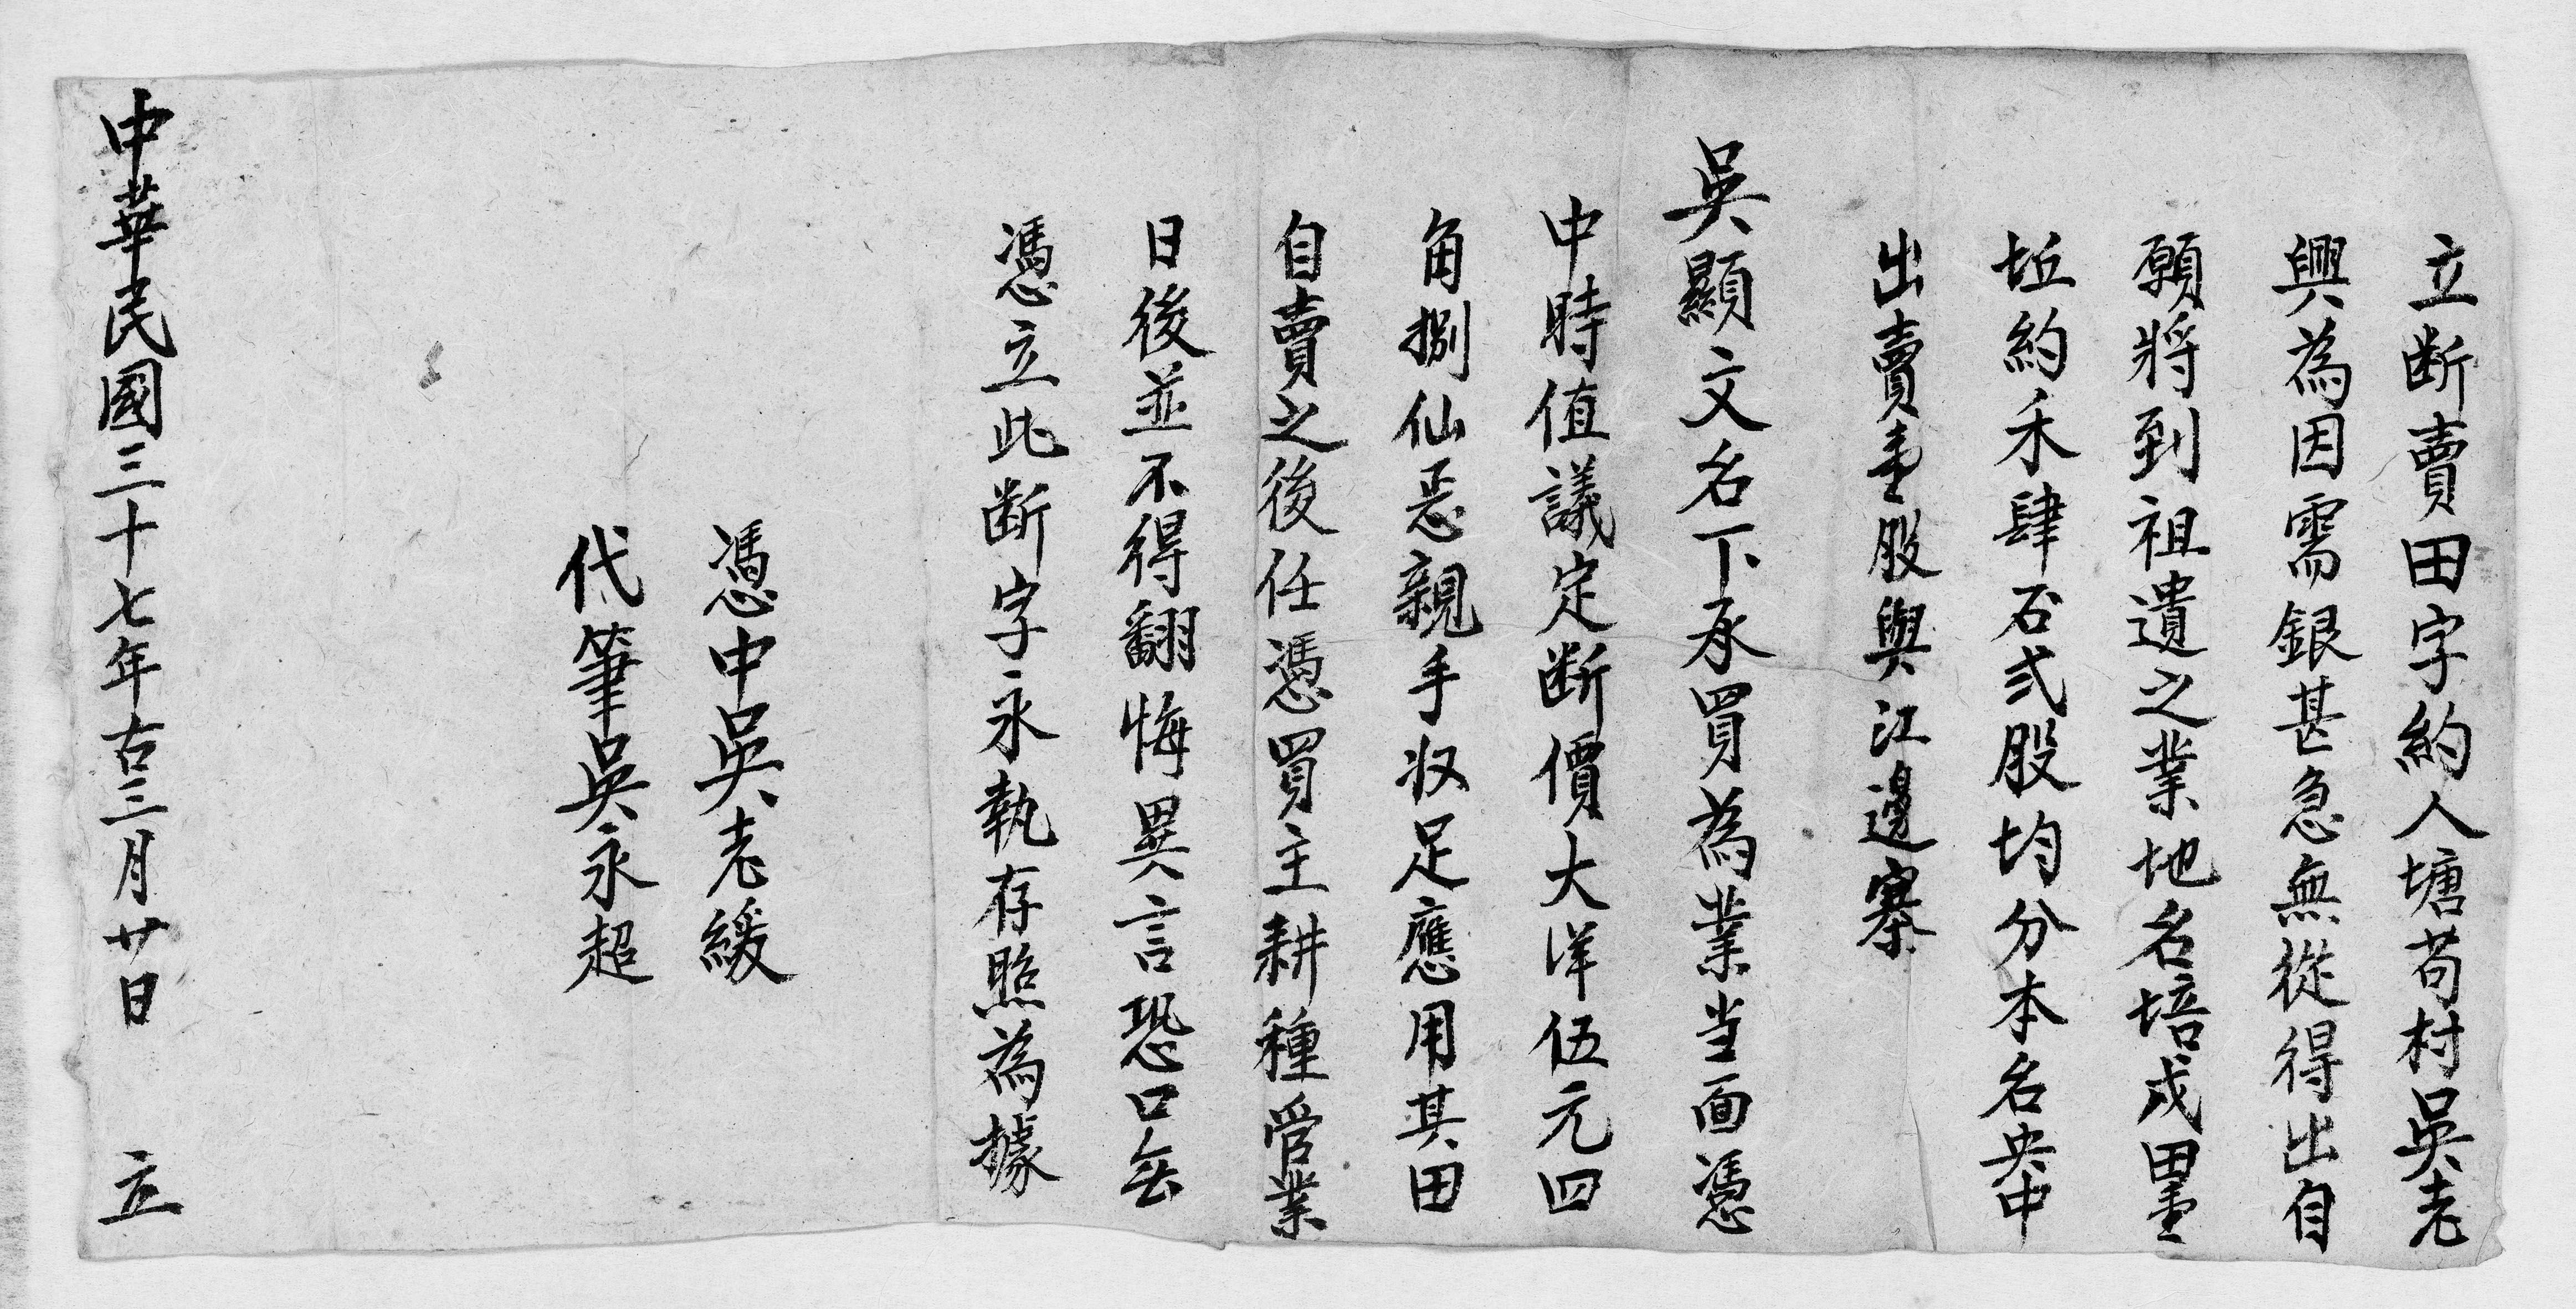 立断賣田字約人塘苟村吳老
興為因需銀甚急無從得出自
願將到祖遺之業地名培戎田壹
坵約禾肆石弍股均分本名央中
出賣壹股與江邊寨
吳顯文名下承買為業当面憑
中時值議定断價大洋伍元四
角捌仙恶親手収足應用其田
自賣之後任憑買主耕種管業
日後並不得翻悔異言恐口無
憑立此断字永執存照為據
憑中吳老緩
代筆吳永超
中華民國三十七年古三月廿日 立